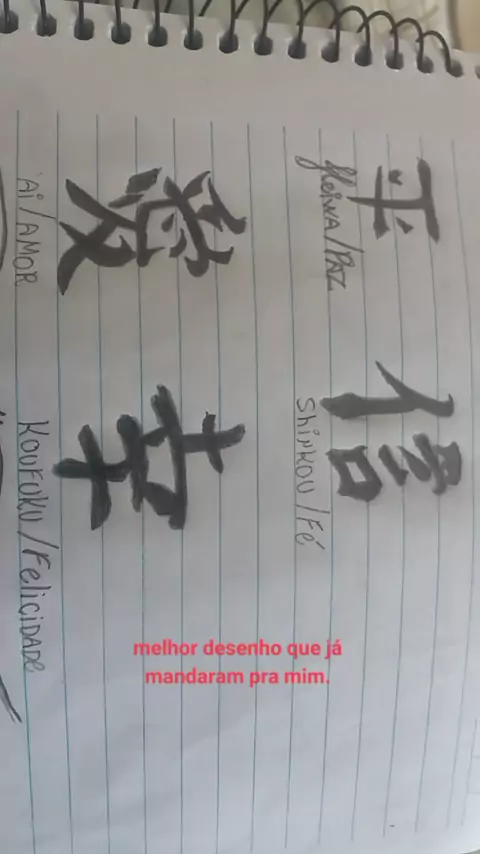 平 信
Heiwa/PAZ
ShiNKOU/Fé
愛 幸
Ai/AMOR
KOUFUKU/FeliCIDADe
melhor desenho que já
mandaram pra mim.